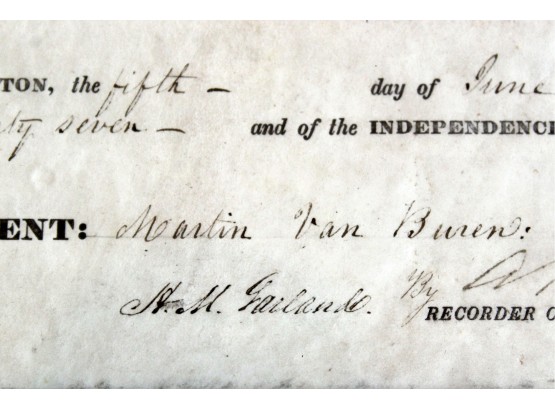 TON, the fifth — day of June
ty seven — and of the INDEPENDENC
ENT: Martin Van Buren:
By
H. M. Garland. RECORDER O